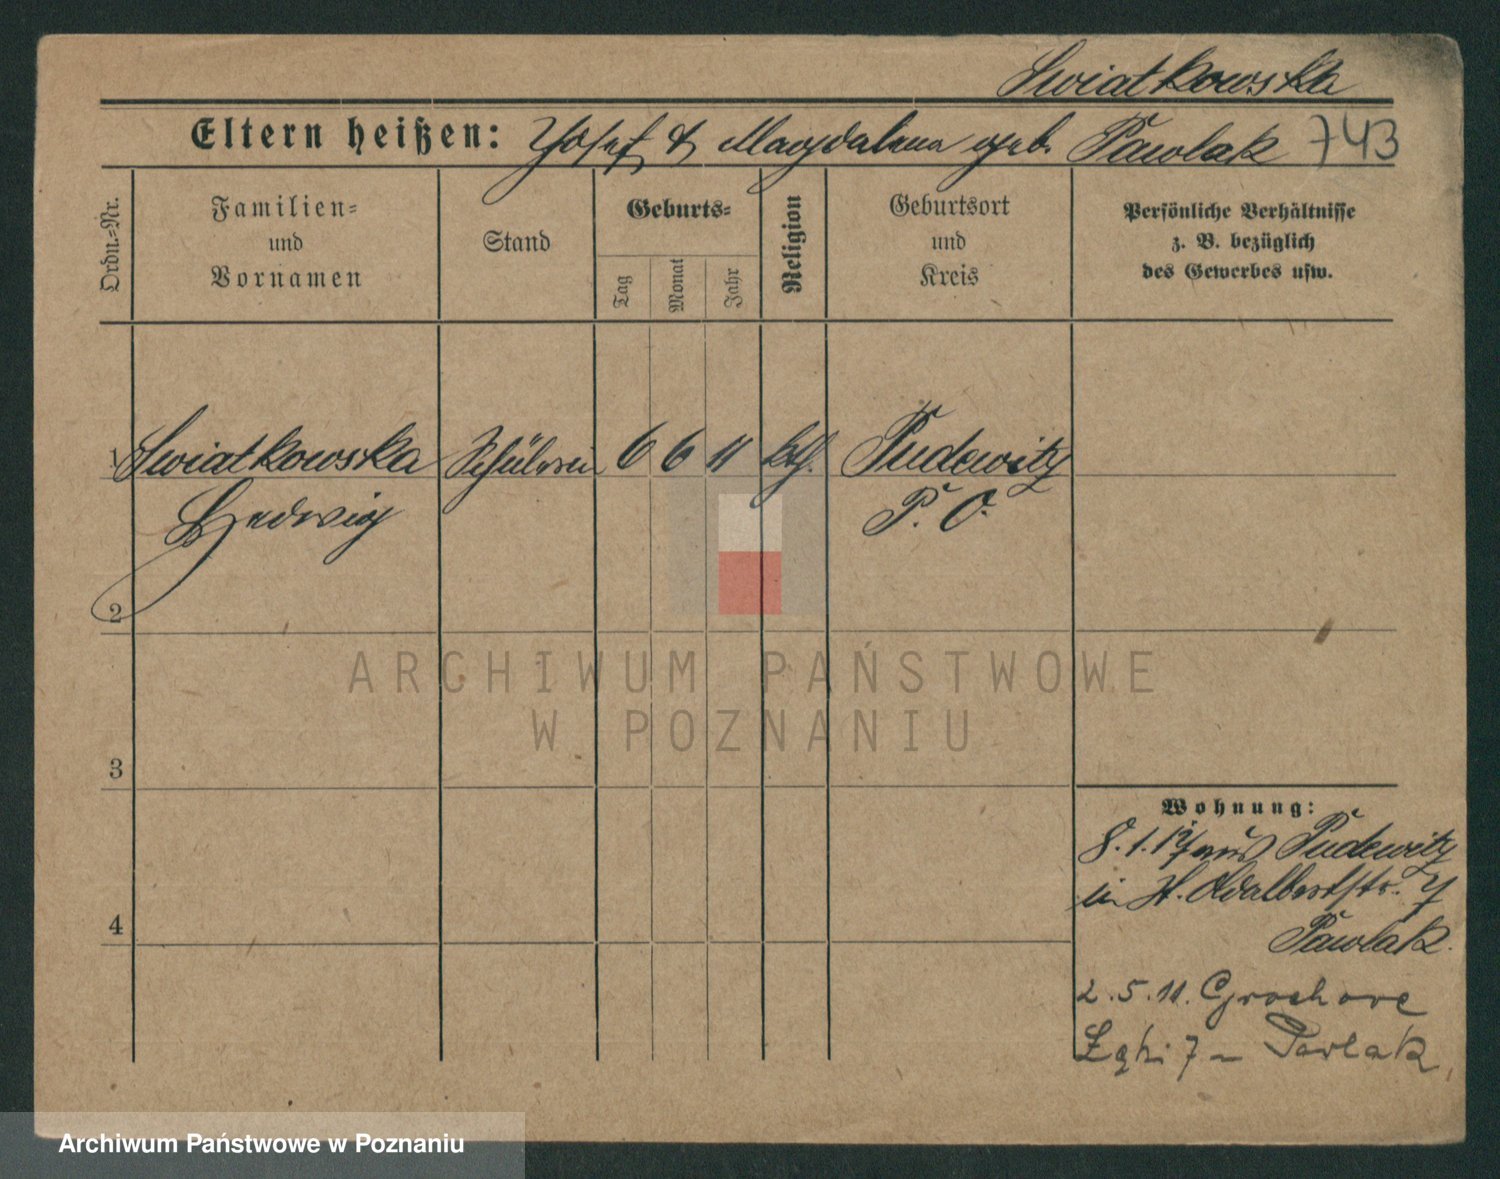 Swiatkowska
Eltern heißen: Josef & Magdalena geb. Pawlak 743
Ordn.-Nr.
Familien-
und
Vornamen
Stand
Geburts-
Tag
Monat
Jahr
Religion
Geburtsort
und
Kreis
Persönliche Verhältnisse
z. B. bezüglich
des Gewerbes usw.
1 Swiatkowska Schülerin 6 6 11 kth. Pudewitz
Hedwig P. O.
2
3
4
Wohnung:
8.1.17 aus Pudewitz
in St. Adalbertstr. 7
Pawlak.
2.5.11. Grochowe
Łąki 7 – Pawlak
ARCHIWUM PAŃSTWOWE
W POZNANIU
Archiwum Państwowe w Poznaniu